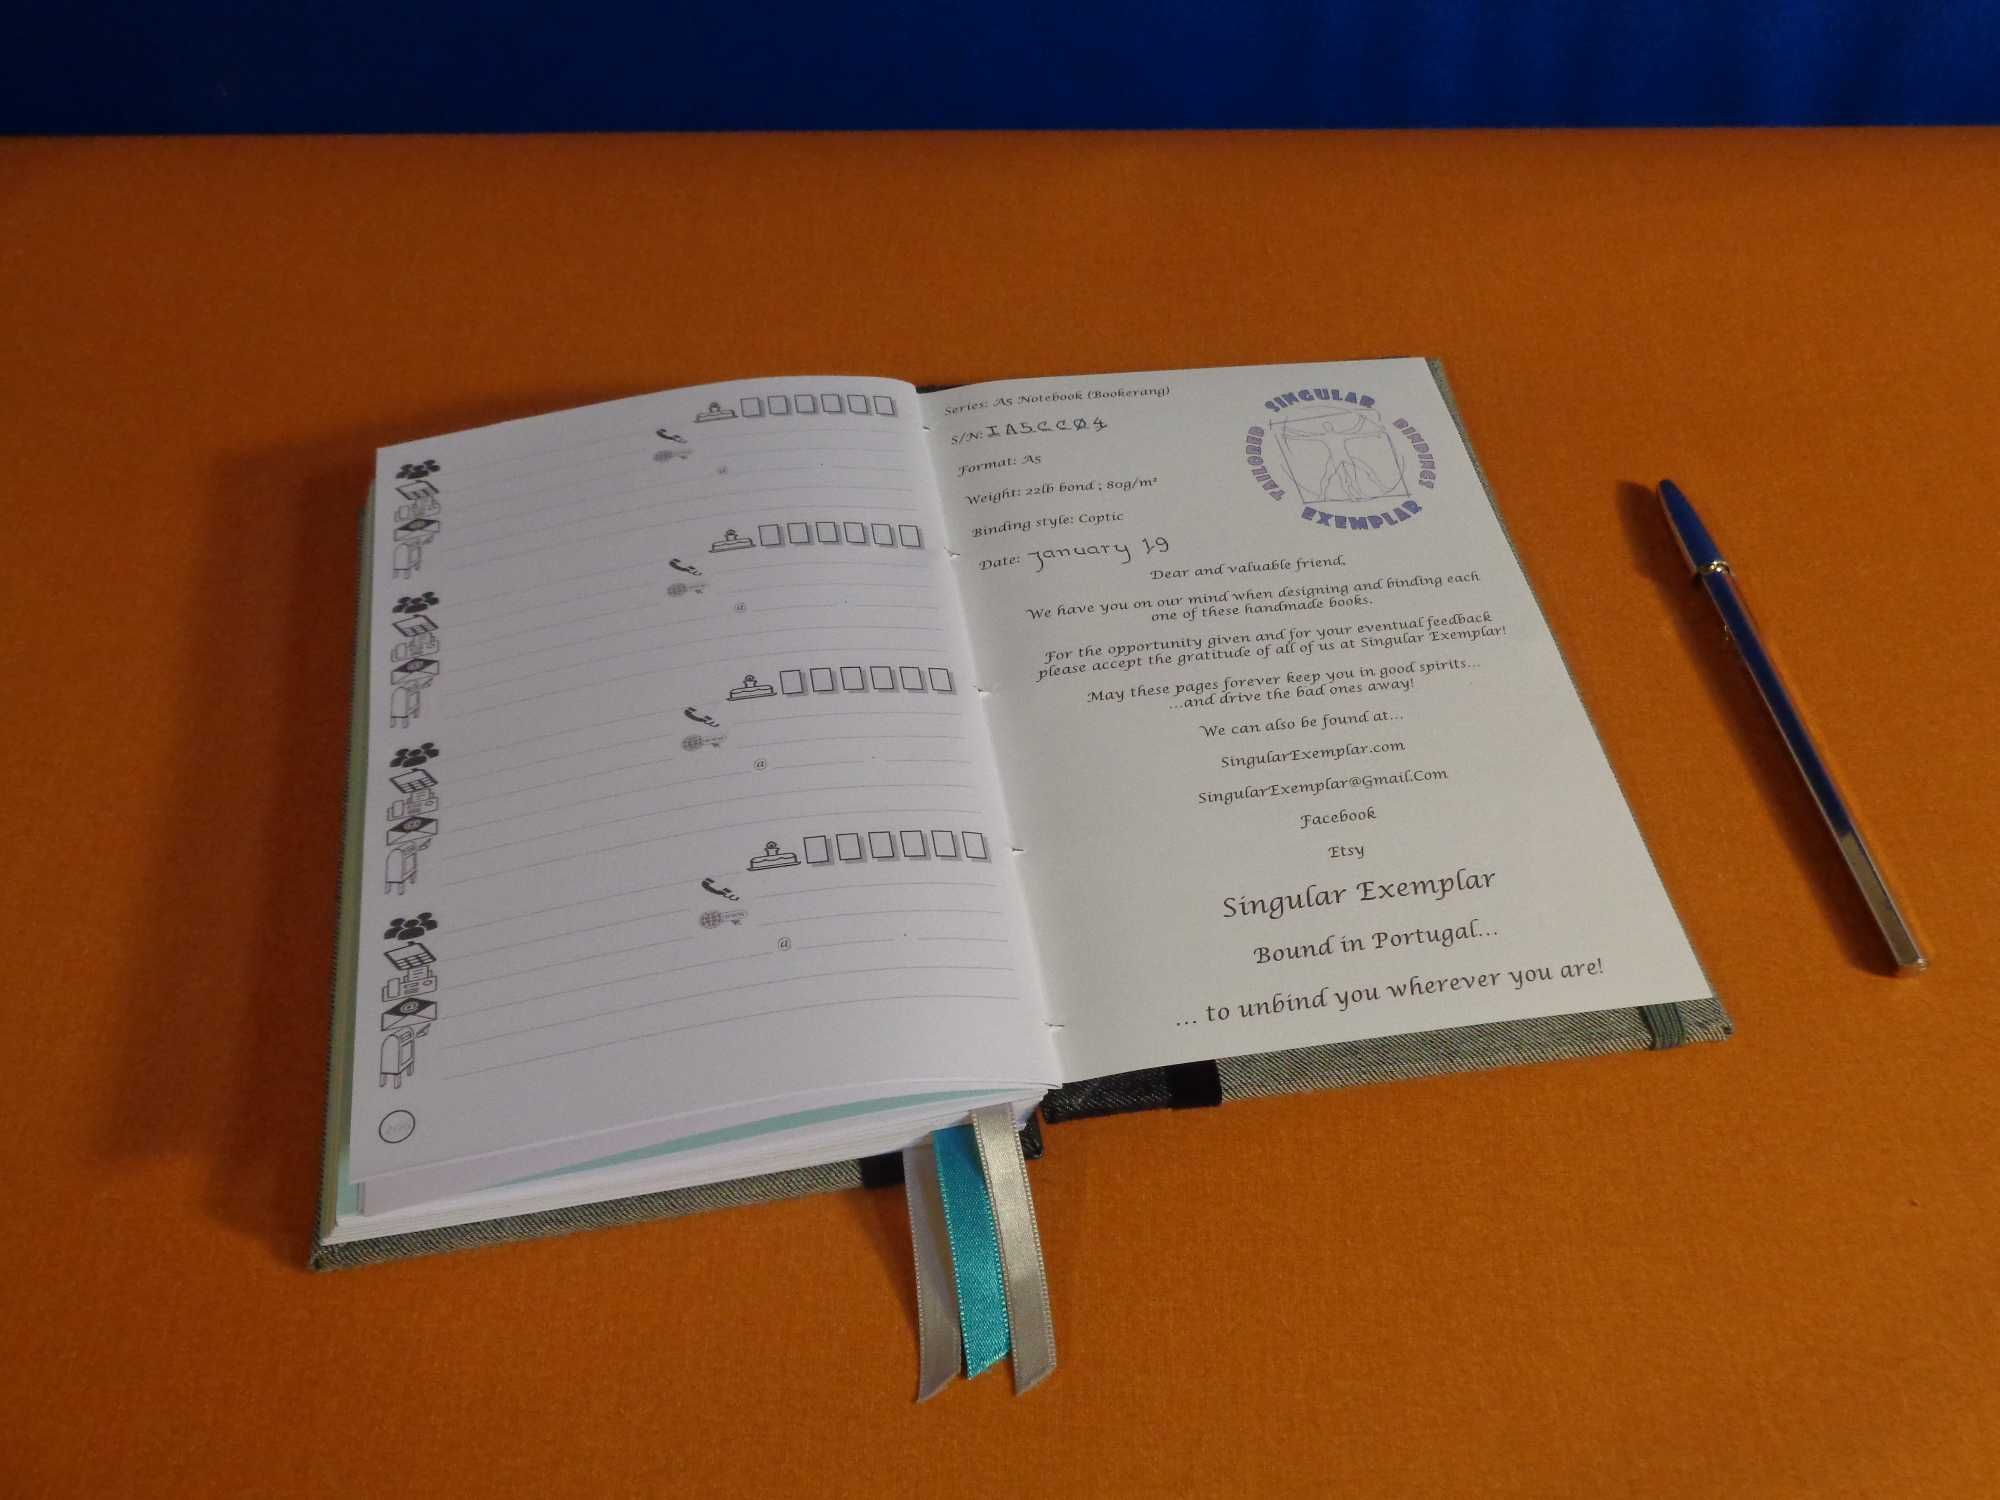 @
@
@
@
Series: A5 Notebook (Bookerang)
S/N: IA5CC04
Format: A5
Weight: 22lb bond ; 80g/m²
Binding style: Coptic
Date: January 19
SINGULAR
BINDINGS
EXEMPLAR
TAILORED
Dear and valuable friend,
We have you on our mind when designing and binding each
one of these handmade books.
For the opportunity given and for your eventual feedback
please accept the gratitude of all of us at Singular Exemplar!
May these pages forever keep you in good spirits...
...and drive the bad ones away!
We can also be found at...
SingularExemplar.com
SingularExemplar@Gmail.Com
Facebook
Etsy
Singular Exemplar
Bound in Portugal...
... to unbind you wherever you are!